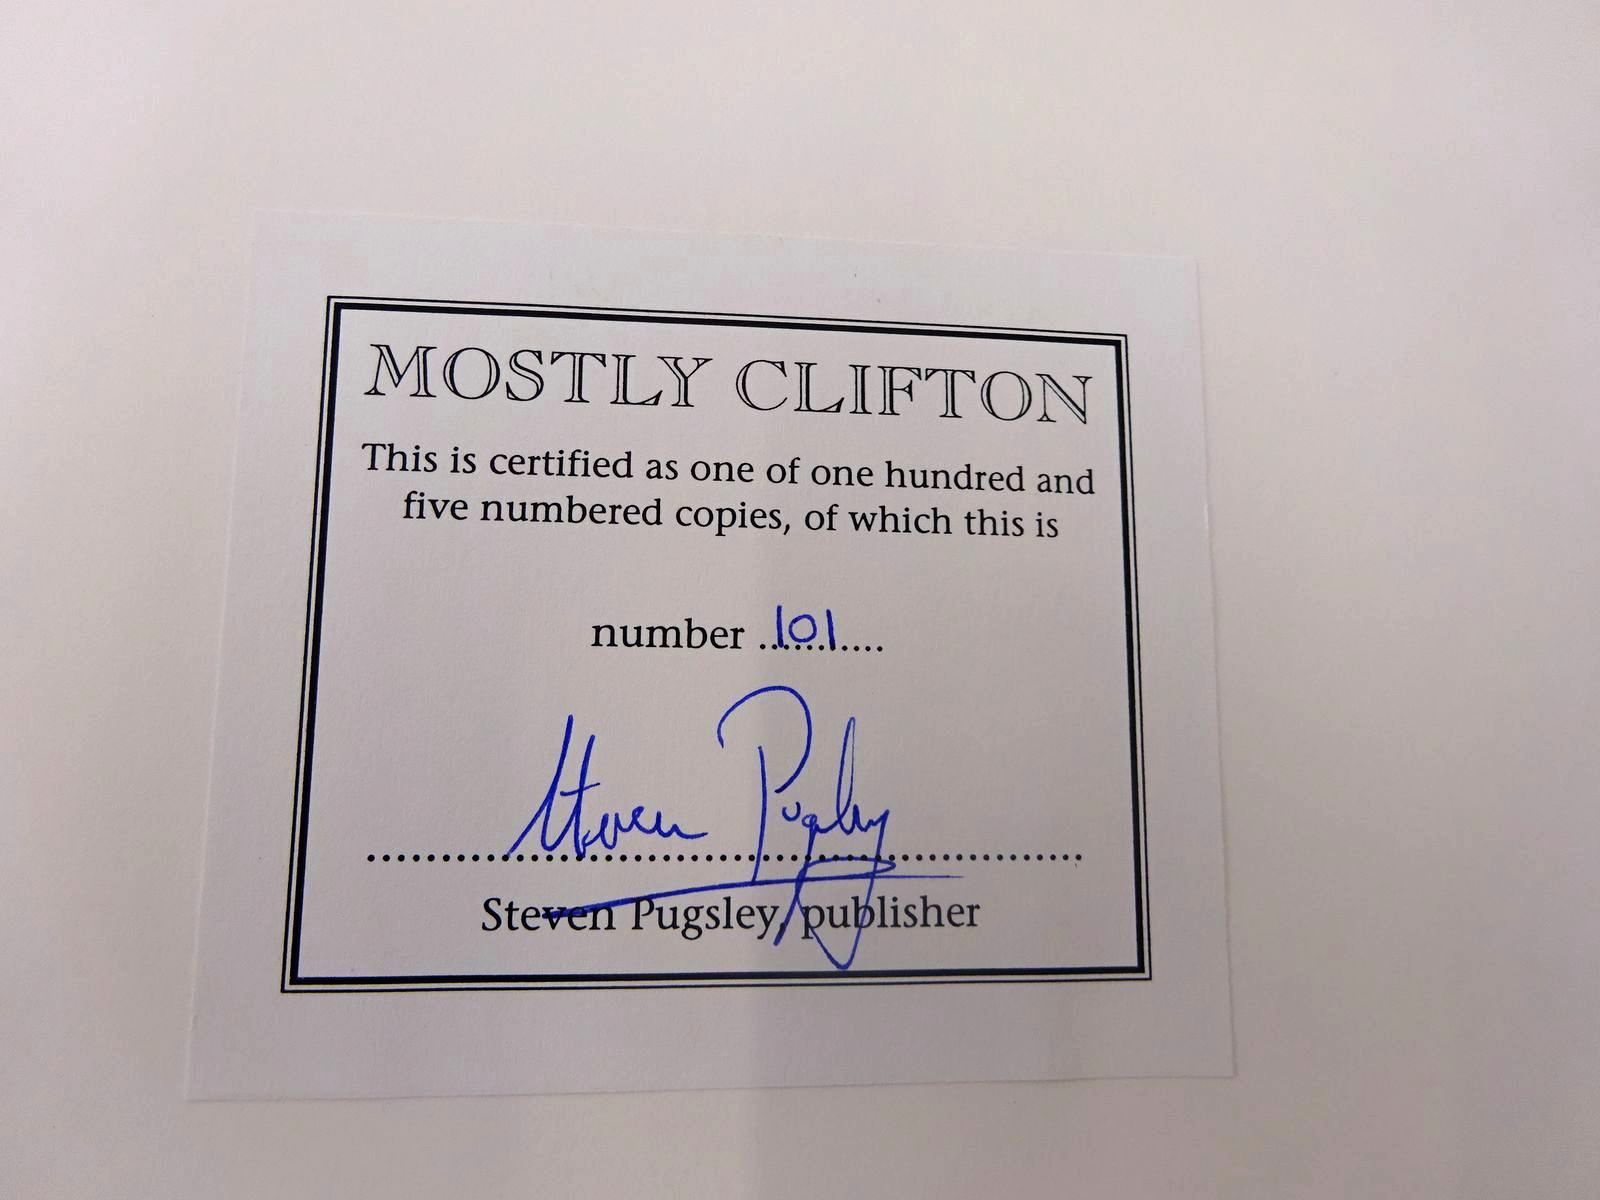 MOSTLY CLIFTON
This is certified as one of one hundred and
five numbered copies, of which this is
number ..101....
Steven Pugsley
Steven Pugsley, publisher